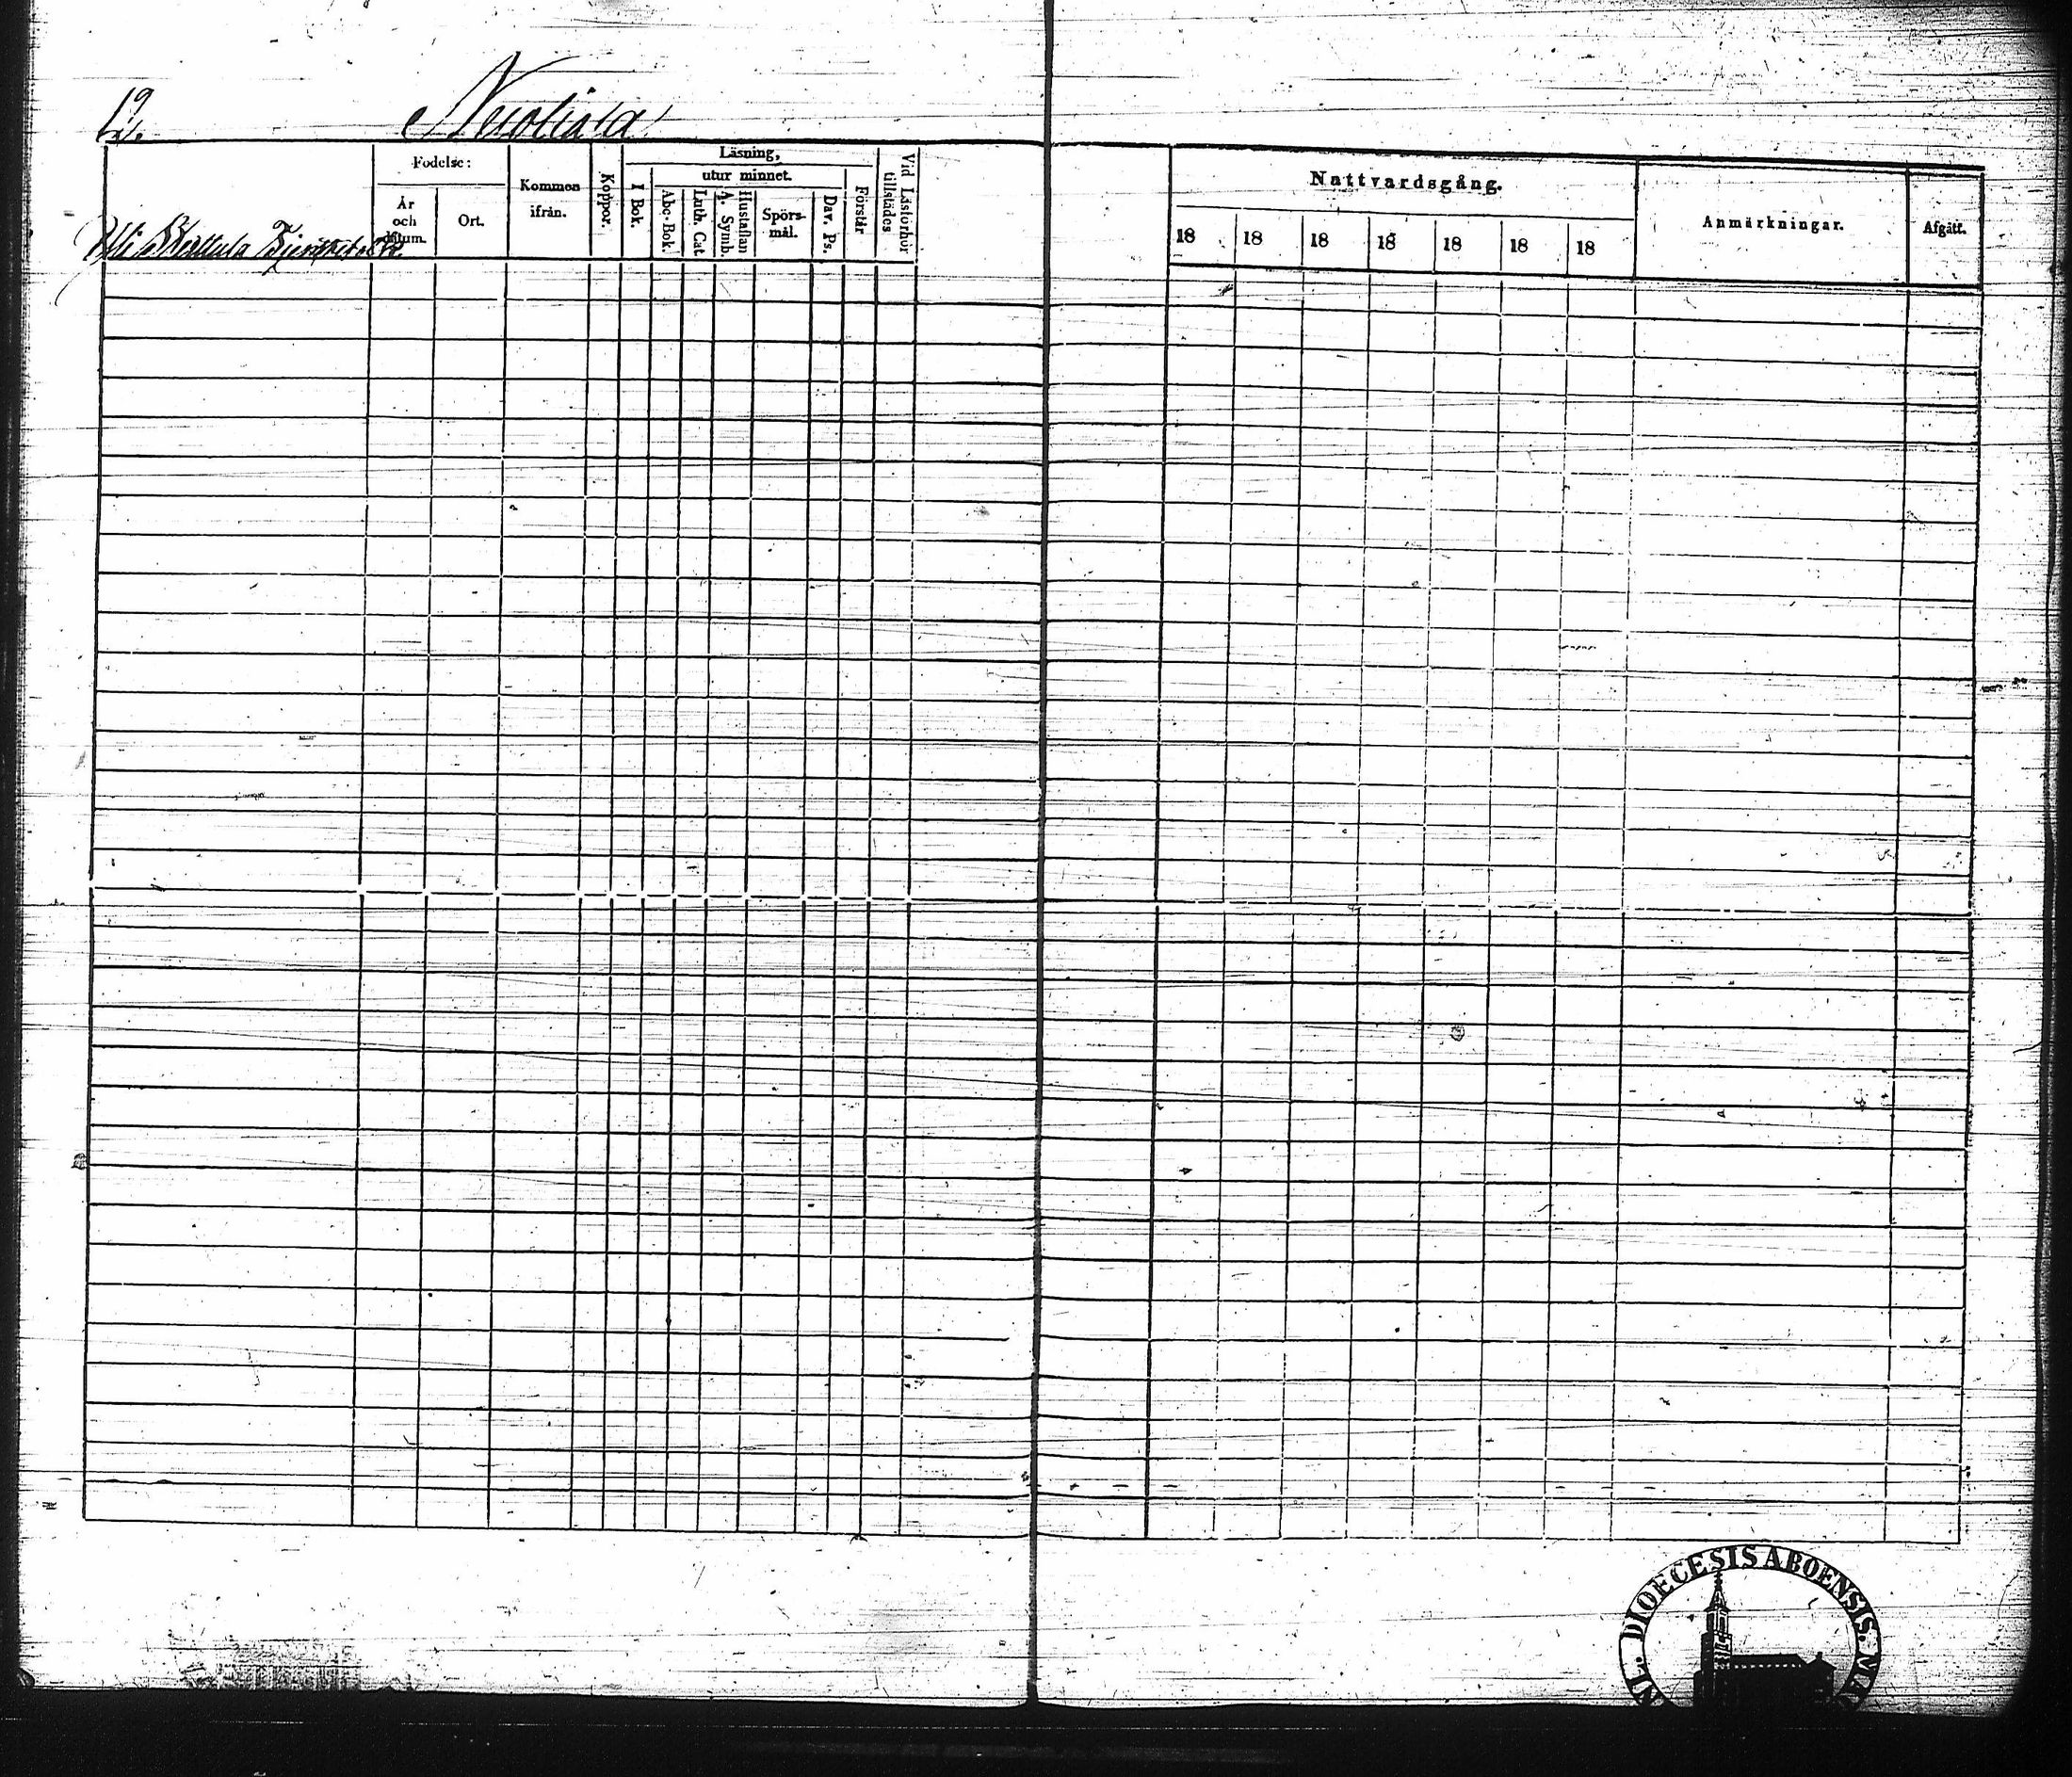 12.
Födelse:
År och datum.
Ort.
Kommen ifrån.
Koppor.
Läsning,
I Bok.
utur minnet.
Abc-Bok.
Luth. Cat.
A. Symb.
Hustaflan
Spörs-
mål.
Dav. Ps.
Förstår
Vid Läsförhör
tillstädes
Nattvardsgång.
18 18 18 18 18 18 18
Anmärkningar.
Afgått.
DIOECESIS ABOENSIS.